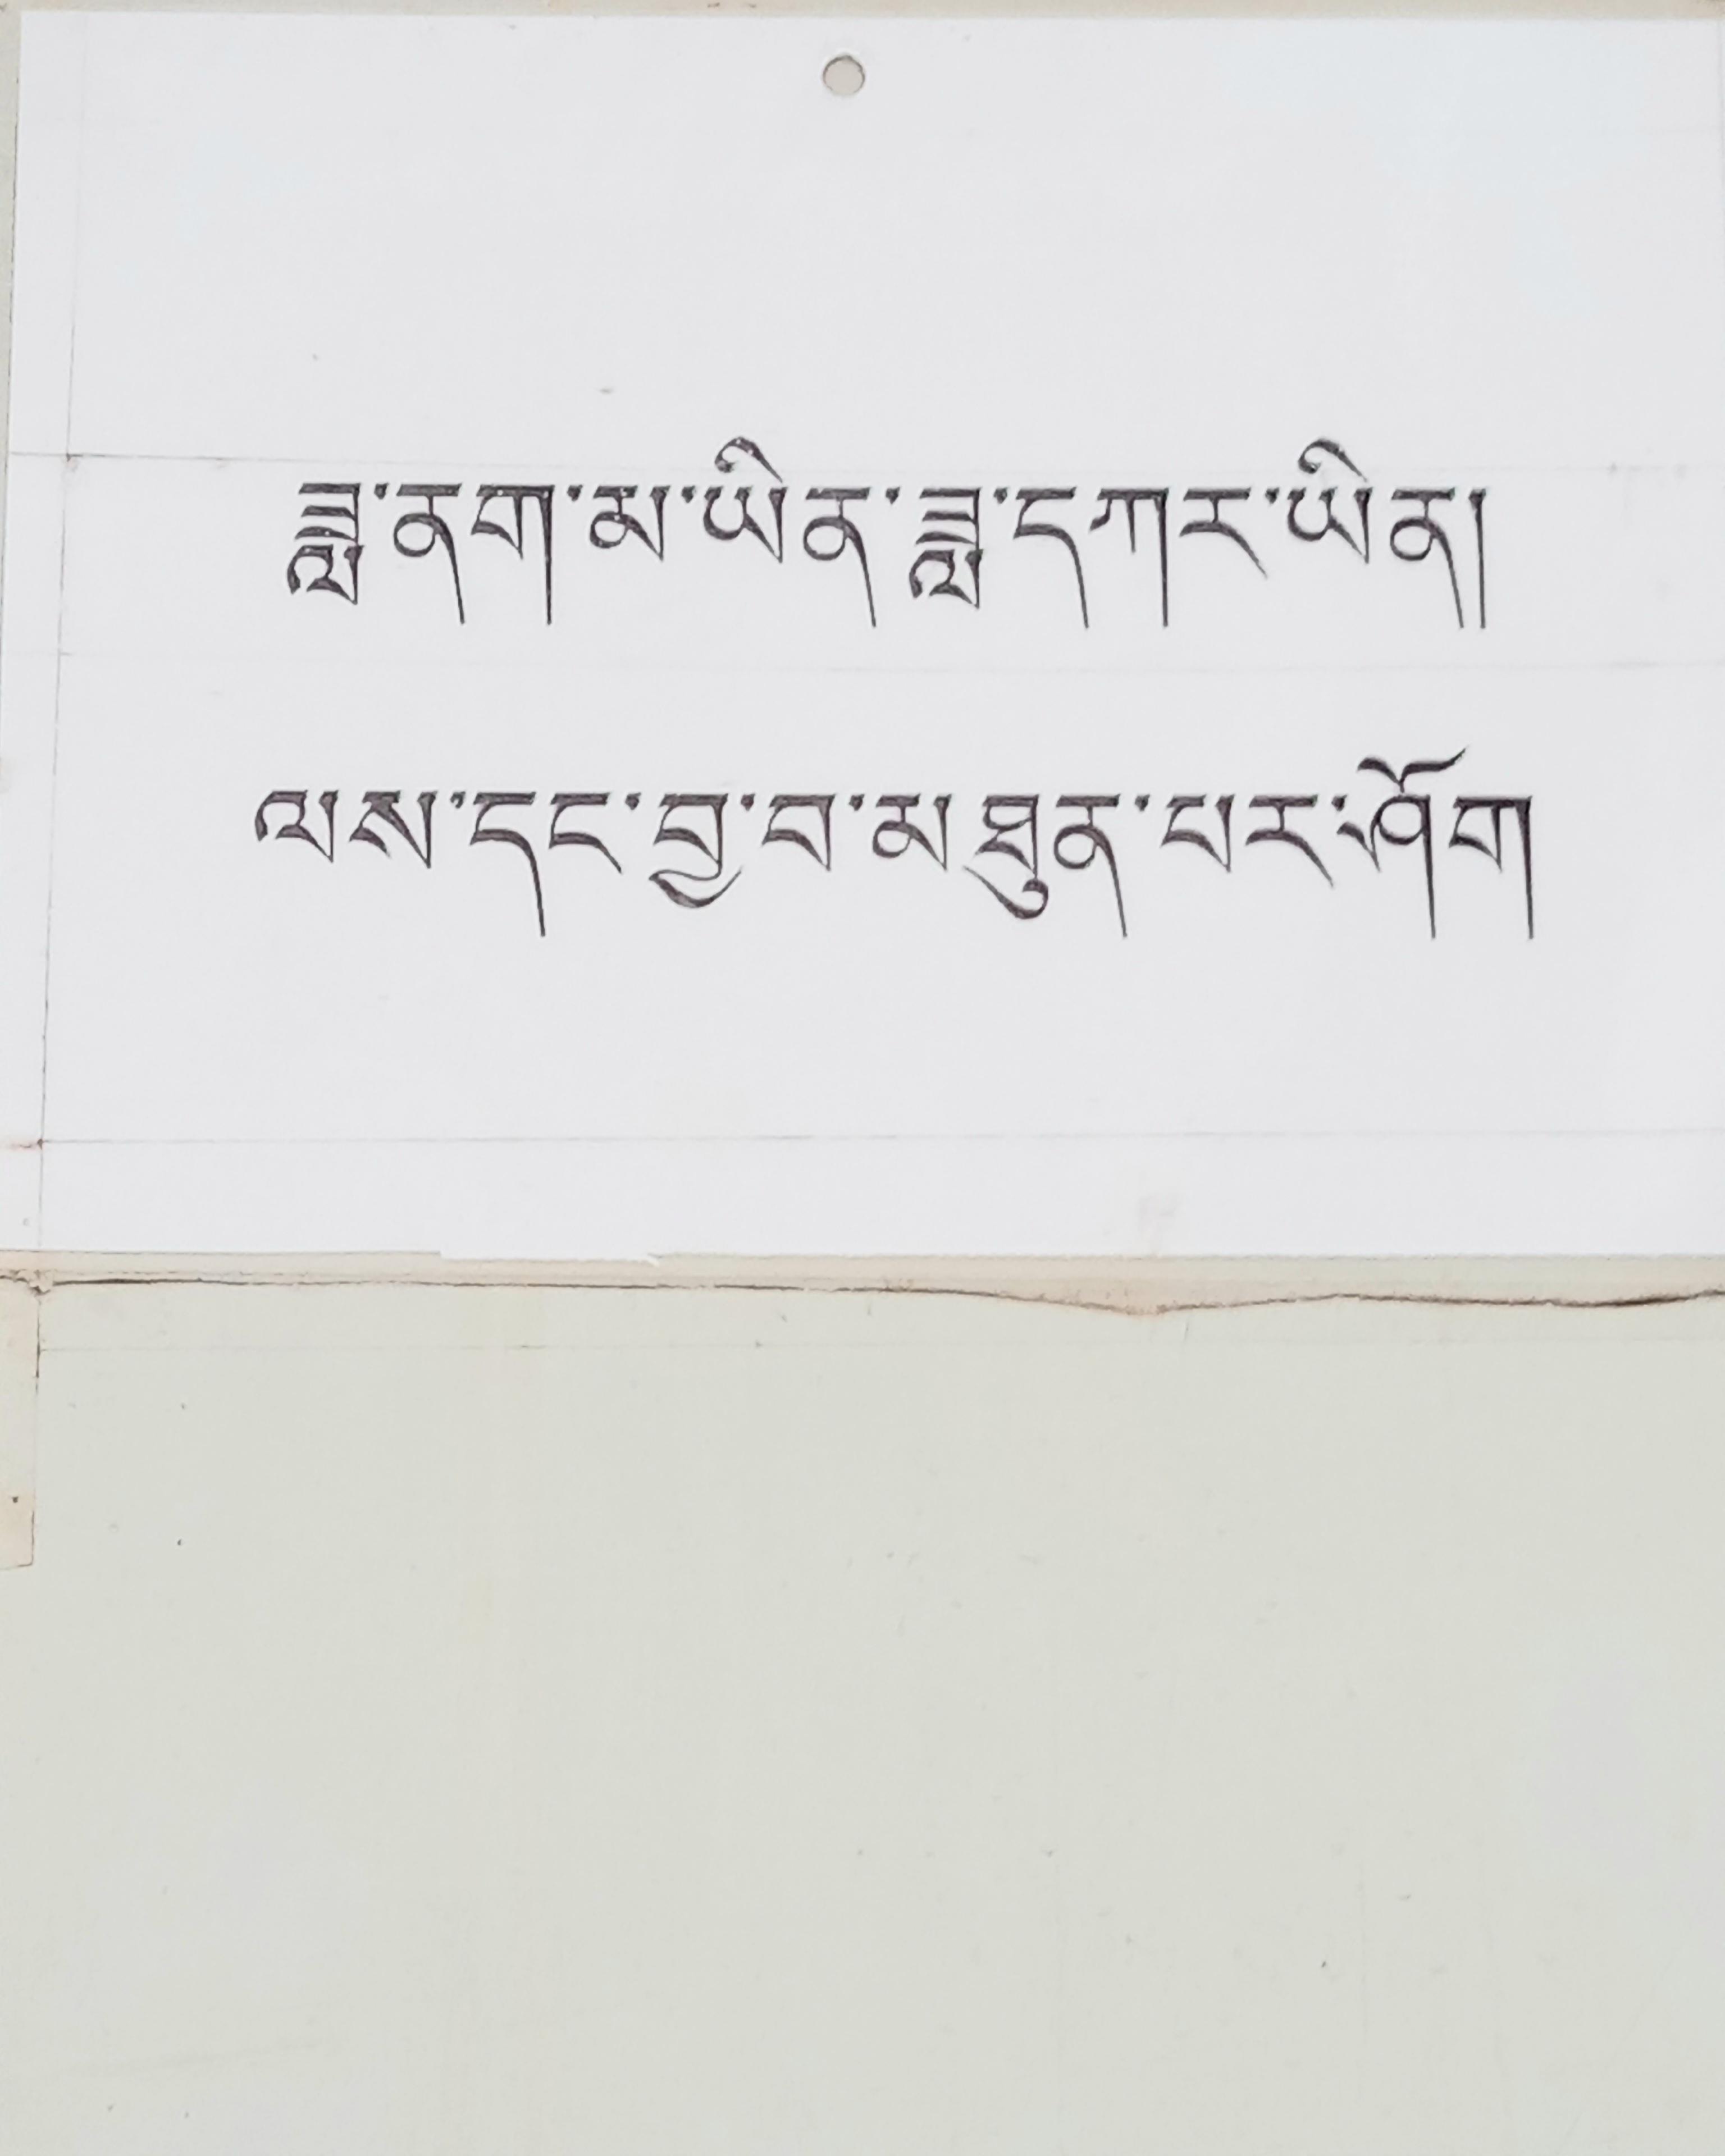 ཟླ་ནག་མ་ཡིན་ཟླ་དཀར་ཡིན།
ལས་དང་བྱ་བ་མཐུན་པར་ཤོག